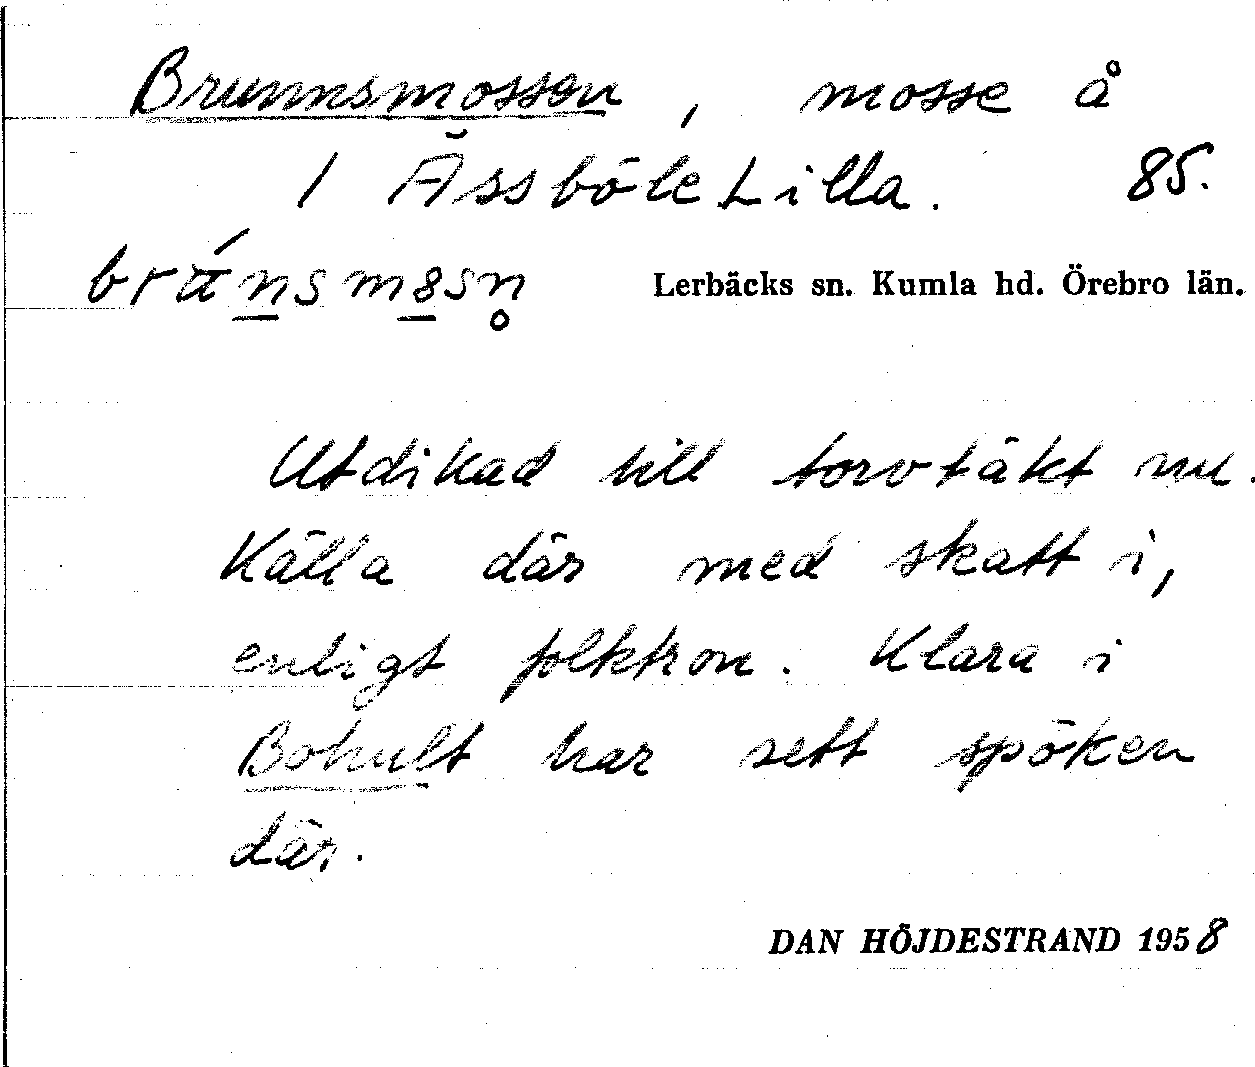 Brunnsmossen, mosse å
1 Ässböle Lilla. 85.
Lerbäcks sn. Kumla hd. Örebro län.
Utdikad till torvtäkt nu.
Källa där med skatt i,
enligt folktron. Klara i
Bohult har sett spöken
där.
DAN HÖJDESTRAND 1958